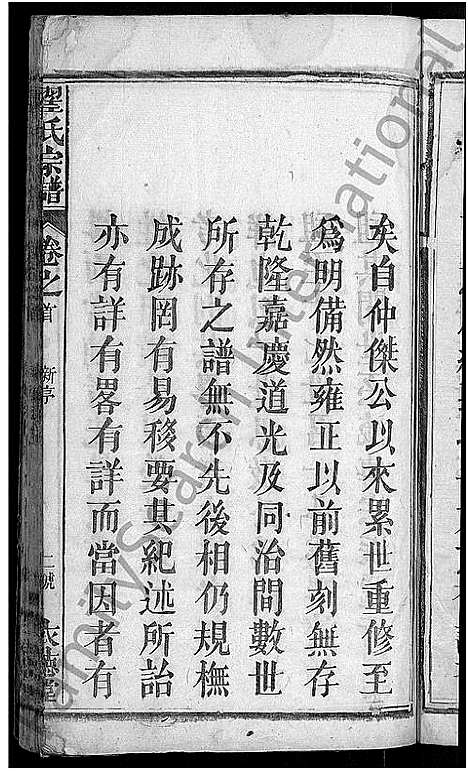 矣自仲傑公以來累世重修至
爲明備然雍正以前舊刻無存
乾隆嘉慶道光及同治間數世
所存之譜無不先後相仍規橅
成跡罔有易移要其紀述所詒
亦有詳有畧有詳而當因者有
翟氏宗譜
卷之首
新序
FamilySearch International